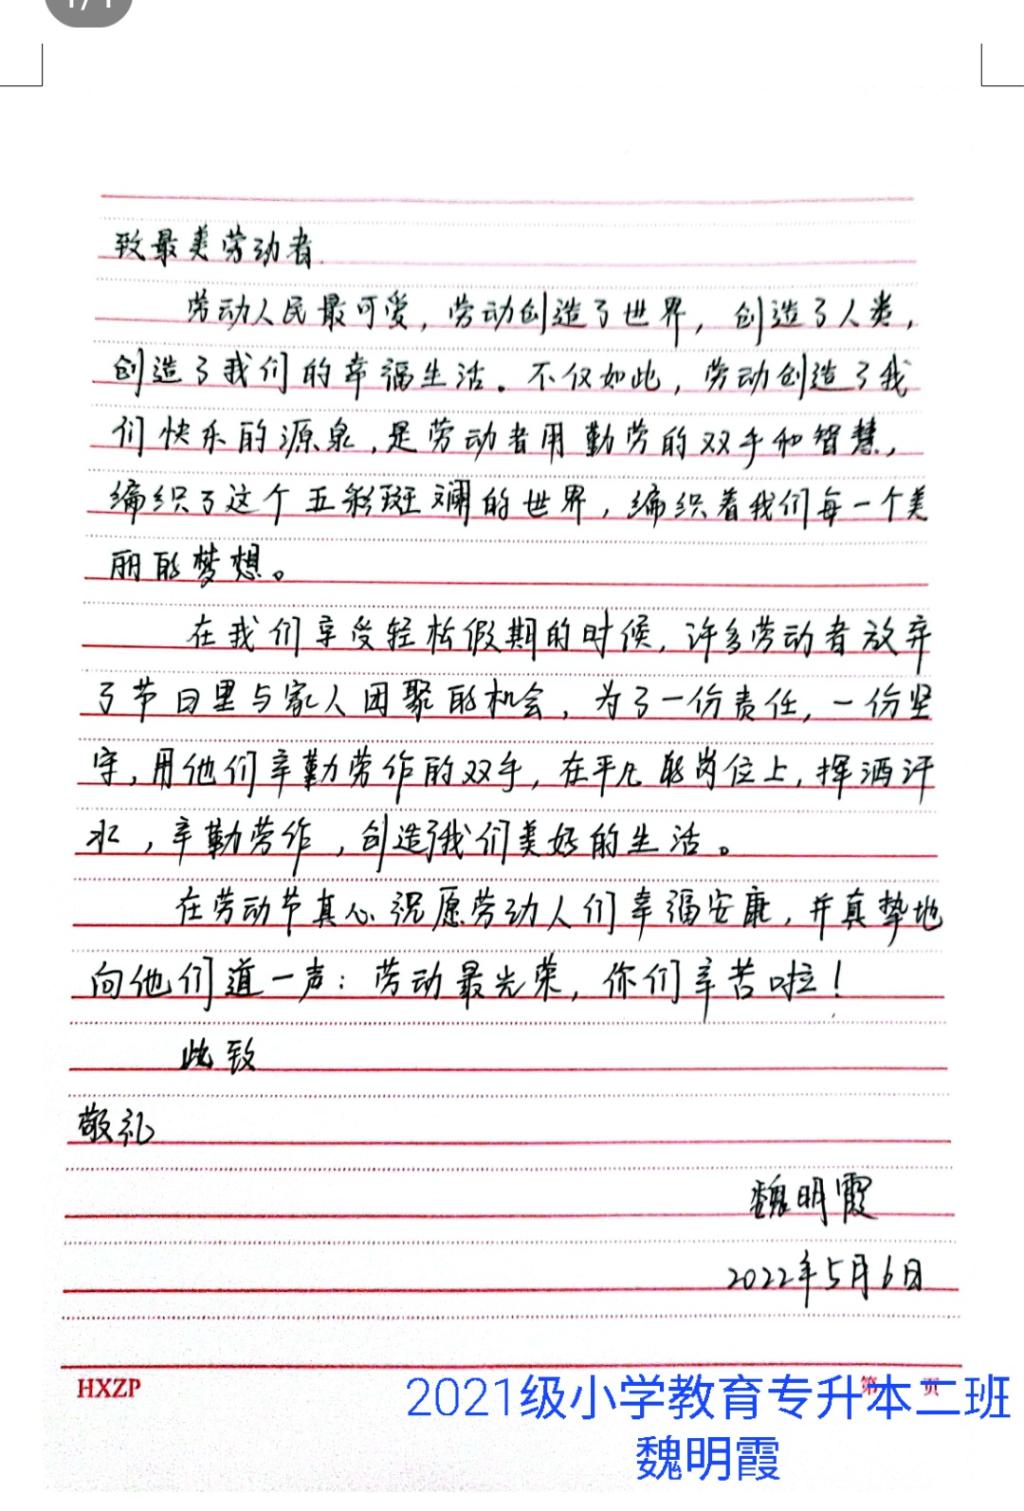 1/1
致最美劳动者.
劳动人民最可爱，劳动创造了世界，创造了人类，
创造了我们的幸福生活。不仅如此，劳动创造了我
们快乐的源泉，是劳动者用勤劳的双手和智慧，
编织了这个五彩斑斓的世界，编织着我们每一个美
丽的梦想。
在我们享受轻松假期的时候，许多劳动者放弃
了节日里与家人团聚的机会，为了一份责任，一份坚
守，用他们辛勤劳作的双手，在平凡的岗位上，挥洒汗
水，辛勤劳作，创造了我们美好的生活。
在劳动节真心祝愿劳动人们幸福安康，并真挚地
向他们道一声：劳动最光荣，你们辛苦啦！
此致
敬礼
魏明霞
2022年5月6日
HXZP
第 页
2021级小学教育专升本二班
魏明霞